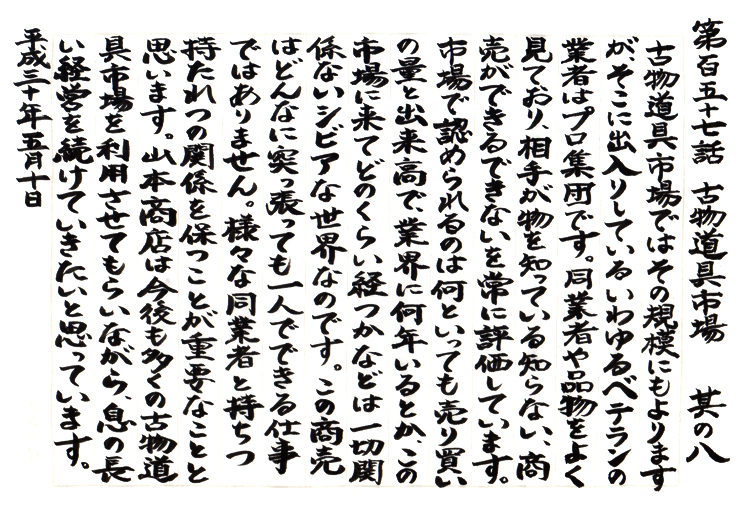 第百五十七話 古物道具市場 其の八
古物道具市場ではその規模にもよります
が、そこに出入りしているいわゆるベテランの
業者はプロ集団です。同業者や品物をよく
見ており、相手が物を知っている知らない、商
売ができるできないを常に評価しています。
市場で認められるのは何といっても売り買い
の量と出来高で、業界に何年いるとか、この
市場に来てどのくらい経つかなどは一切関
係ないシビアな世界なのです。この商売
はどんなに突っ張っても一人でできる仕事
ではありません。様々な同業者と持ちつ
持たれつの関係を保つことが重要なことと
思います。山本商店は今後も多くの古物道
具市場を利用させてもらいながら、息の長
い経営を続けていきたいと思っています。
平成三十年五月十日